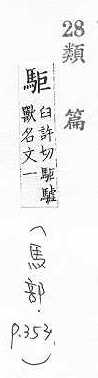 28
類篇
駏
臼許切駏驢
獸名文一
(馬部.
P.353)